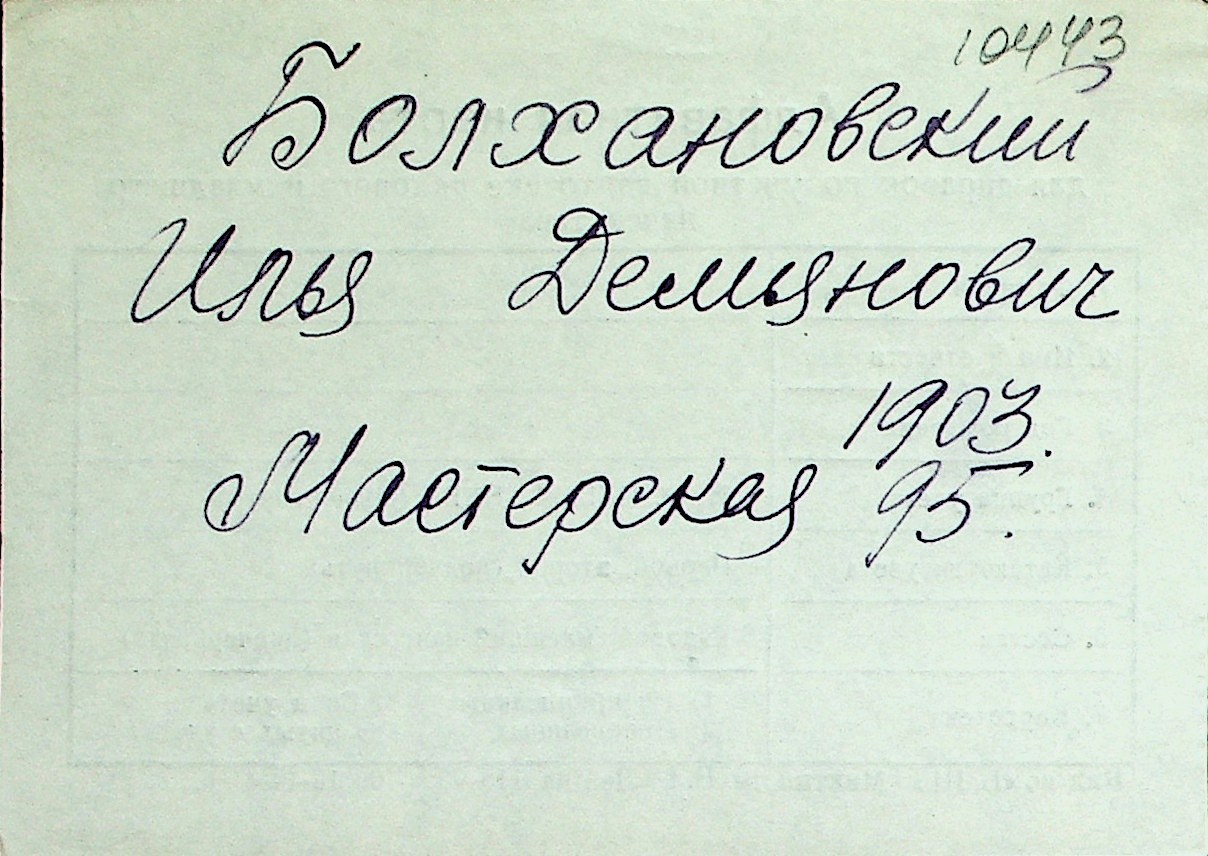 10443
Болхановский
Илья Демьянович
1903.
Мастерская 95.